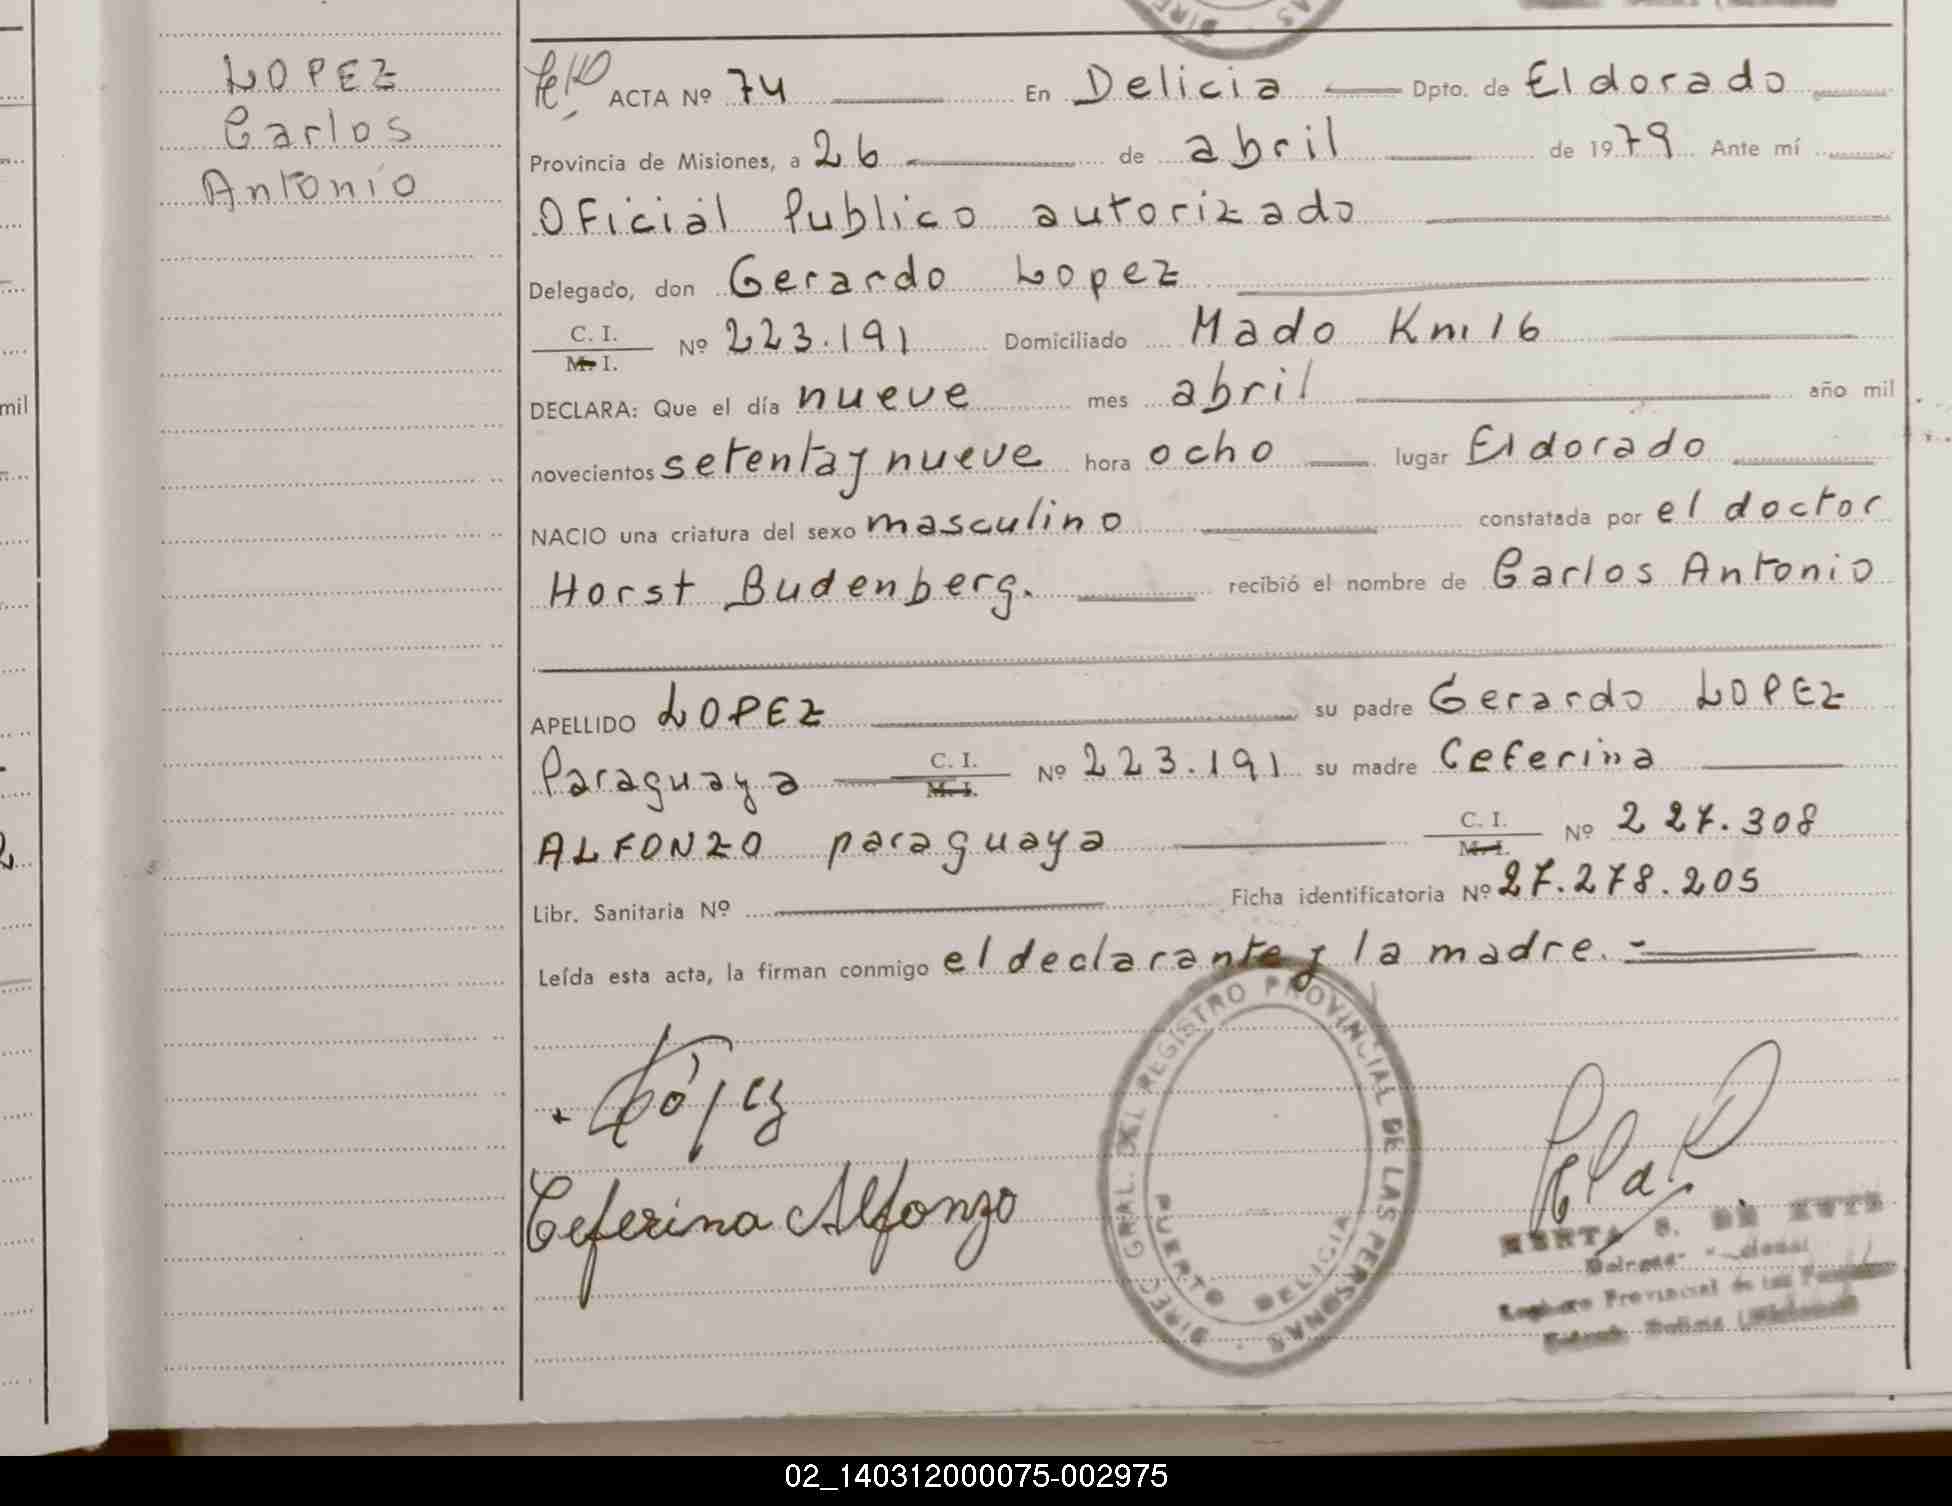 LOPEZ
Carlos
Antonio
ACTA Nº 74 En Delicia Dpto. de Eldorado
Provincia de Misiones, a 26 de abril de 1979 Ante mí
Oficial Publico autorizado
Delegado, don Gerardo Lopez
C. I.
M. I. Nº 223.191 Domiciliado Mado Km 16
DECLARA: Que el día nueve mes abril año mil
novecientos setenta y nueve hora ocho lugar Eldorado
NACIO una criatura del sexo masculino constatada por el doctor
Horst Budenberg. recibió el nombre de Carlos Antonio
APELLIDO LOPEZ su padre Gerardo LOPEZ
Paraguaya C. I. M. I. Nº 223.191 su madre Ceferina
ALFONZO paraguaya C. I. M. I. Nº 227.308
Libr. Sanitaria Nº Ficha identificatoria Nº 27.278.205
Leída esta acta, la firman conmigo el declarante y la madre.-
López
Ceferina Alfonzo
DIREC. GRAL. DEL REGISTRO PROVINCIAL DE LAS PERSONAS
PUERTO DELICIA
Provincial de las
mil
02_140312000075-002975